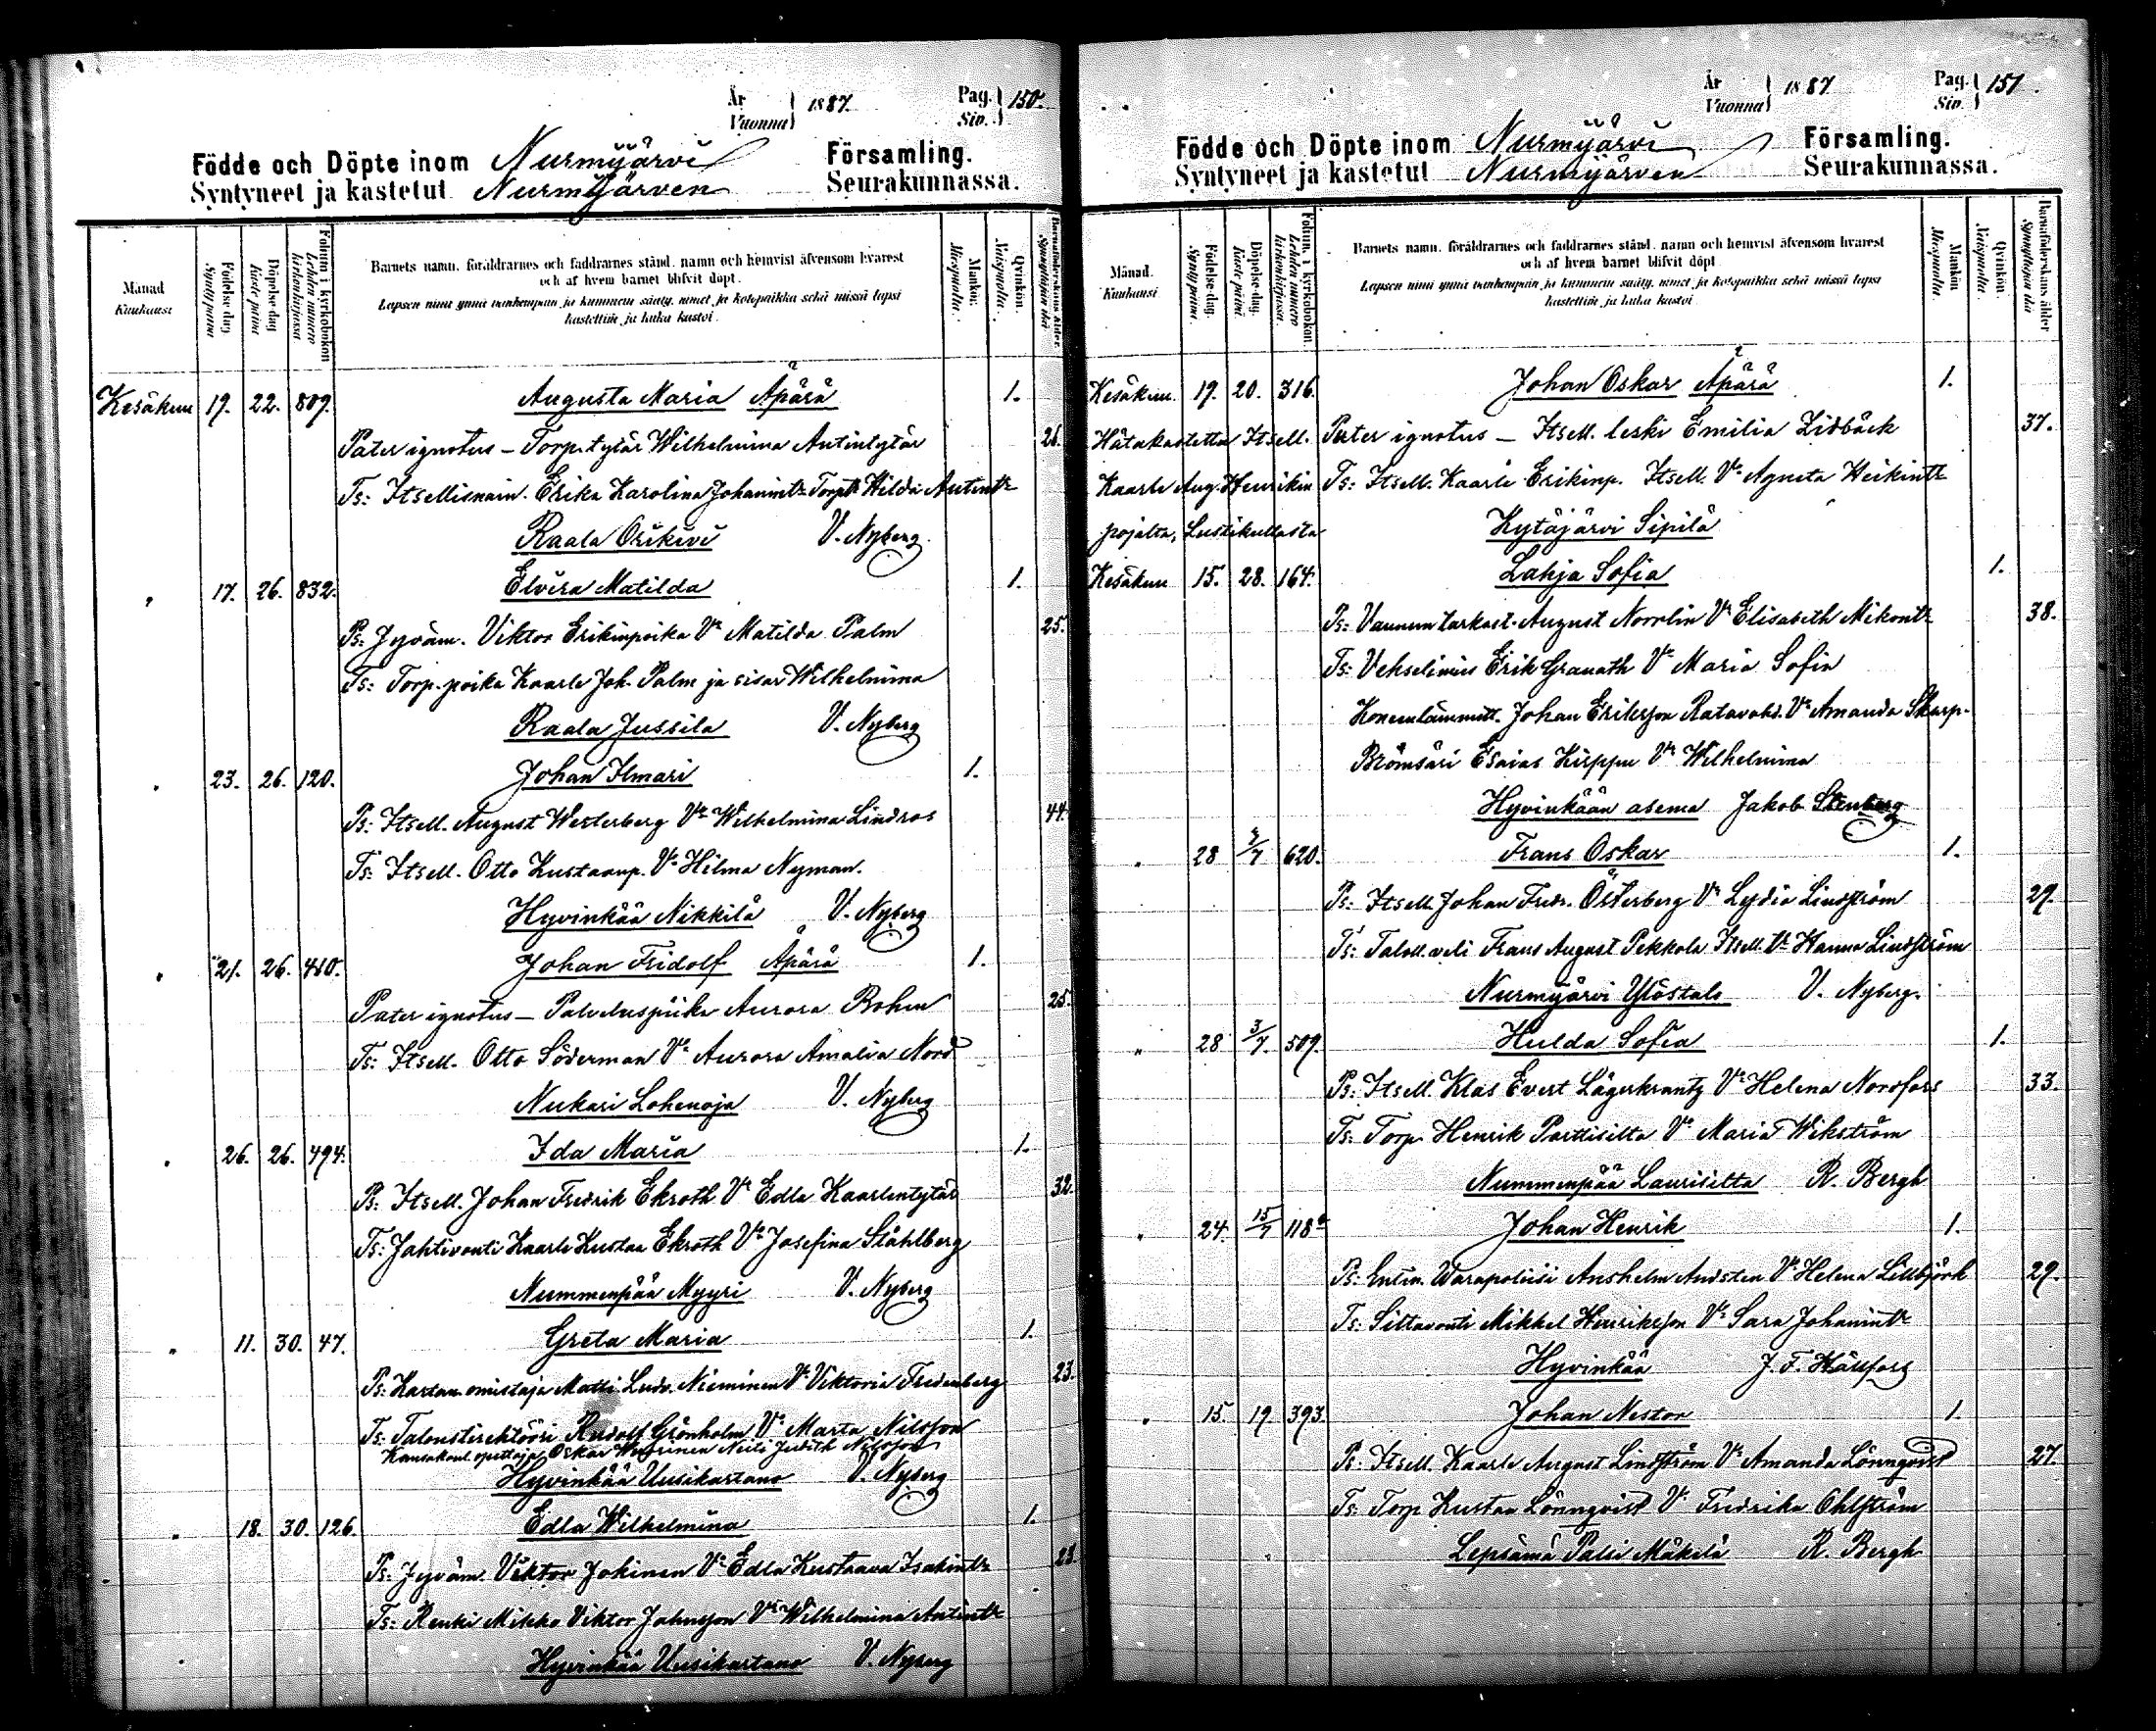 År
Vuonna
1887.
Pag.
Siv.
150.
Födde och Döpte inom Nurmijärvi Församling.
Syntyneet ja kastetut Nurmijärven Seurakunnassa.
Månad
Kuukausi
Födelse dag
Syntypäinä
Döpelse dag
Kaste päinä
Folium i kyrkobokon
Lehden numero
kirkonkirjassa
Barnets namn, föräldrarnes och faddrarnes stånd, namn och hemvist äfvensom hvarest
och af hvem barnet blifvit döpt.
Lapsen nimi ynnä vanhempain ja kummein sääty, nimet ja kotopaikka sekä missä lapsi
kastettiin ja kuka kastoi.
Mankön.
Miespuolta.
Qvinkön.
Naispuolta.
Barnaföderskans ålder.
Synnyttäjän ikä.
Kesäkuu 19. 22. 809. Augusta Maria Äpärä 1.
Pater ignotus – Torp. tytär Wilhelmina Antintytär 26.
Ts: Itsellisnain. Erika Karolina Johanintr Torptr Hilda Antintr
Raala Orikivi V. Nyberg
" 17. 26. 832. Elvira Matilda 1.
Ps: Jyväm. Viktor Erikinpoika Vo Matilda Palm 25.
Ts: Torp. poika Kaarle Joh. Palm ja sisar Wilhelmina
Raala Jussila V. Nyberg
" 23. 26. 120. Johan Ilmari 1.
Ps: Itsell. August Westerberg Vo Wilhelmina Lindros 44.
Ts: Itsell. Otto Kustaanp. Vo Hilma Nyman.
Hyvinkää Nikkilä V. Nyberg
" 21. 26. 410. Johan Fridolf Äpärä 1.
Pater ignotus – Palveluspiika Aurora Bohm 25.
Ts: Itsell. Otto Söderman Vo Aurora Amalia Nord
Nukari Lohenoja V. Nyberg
" 26. 26. 494. Ida Maria 1.
Ps: Itsell. Johan Fredrik Ekroth Vo Edla Kaarlentytär 32.
Ts: Jahtivouti Kaarle Kustaa Ekroth Vo Josefina Ståhlberg
Nummenpää Myyri V. Nyberg
" 11. 30. 47. Greta Maria 1.
Ps: Kartan. omistaja Matti Ludv. Nieminen Vo Viktoria Fredenberg 23.
Ts: Talonstirehtööri Rudolf Grönholm Vo Marta Nilsson
Kansakoul. opettaja Oskar Neiti Judith Nilsson
Hyvinkää Uusikartano V. Nyberg
" 18. 30. 126. Edla Wilhelmina 1.
Ps: Jyväm. Viktor Jokinen Vo Edla Kustaava Isakintr 28.
Ts: Renki Mikko Viktor Johnsson Vo Wilhelmina Antintr
Hyvinkää Uusikartano V. Nyberg
År
Vuonna
1887
Pag.
Siv.
151.
Födde och Döpte inom Nurmijärvi Församling.
Syntyneet ja kastetut Nurmijärven Seurakunnassa.
Månad.
Kuukausi
Födelse dag.
Syntypäinä.
Döpelse-dag.
Kaste päinä.
Folium i kyrkobokon.
Lehden numero
kirkonkirjassa.
Barnets namn, föräldrarnes och faddrarnes stånd, namn och hemvist äfvensom hvarest
och af hvem barnet blifvit döpt
Lapsen nimi ynnä vanhempain ja kummein sääty, nimet ja kotopaikka sekä missä lapsi
kastettiin ja kuka kastoi
Mankön
Miespuolta
Qvinkön.
Naispuolta.
Barnaföderskans ålder
Synnyttäjän ikä
Kesäkuu. 19. 20. 316. Johan Oskar Äpärä 1.
Hätäkastettu Itsell. Pater ignotus – Itsell. leski Emilia Lidbäck 37.
Kaarle Aug. Henrikin Ts: Itsell. Kaarle Erikinp. Itsell. Vo Agneta Heikintr
pojalta, Kytäjärvi Sipilä
Kesäkuu 15. 28. 164. Lahja Sofia 1.
Ps: Vaunun tarkast. August Norrlin Vo Elisabeth Mikontr 38.
Ts: Vekselimies Erik Granath Vo Maria Sofia
Koneenlämmitt. Johan Eriksson Ratavahd. Vo Amanda Skarp.
Esaias Kirppu Vo Wilhelmina
Hyvinkään asema Jakob Stenberg
" 28 3/7 620. Frans Oskar 1.
Ps: Itsell. Johan Fredr. Österberg Vo Lydia Lindström 29.
Ts: Taloll. veli Frans August Pekkola Itsell. Vo Hanna Lindström
Nurmijärvi Ylöstalo V. Nyberg.
" 28 3/7. 509. Hulda Sofia 1.
Ps: Itsell. Klas Evert Lägerkrantz Vo Helena Nordfors 33.
Ts: Torp. Henrik Porttisilta Vo Maria Wikström
Nummenpää Laurisilta R. Bergh
" 24. 15/7 118 Johan Henrik 1.
Ps: Entin. Warapoliisi Anshelm Andstén Vo Helena Lillbjörk 29.
Ts: Siltavouti Mikkel Henriksson Vo Sara Johanintr
Hyvinkää J. F. Hällfors
" 15. 19 393. Johan Nestor 1.
Ps: Itsell. Kaarle August Lindström Vo Amanda Lönnqvist 27.
Ts: Torp Kustaa Lönnqvist Vo Fredrika Ohlström
Lepsämä Palsi Mäkelä R. Bergh